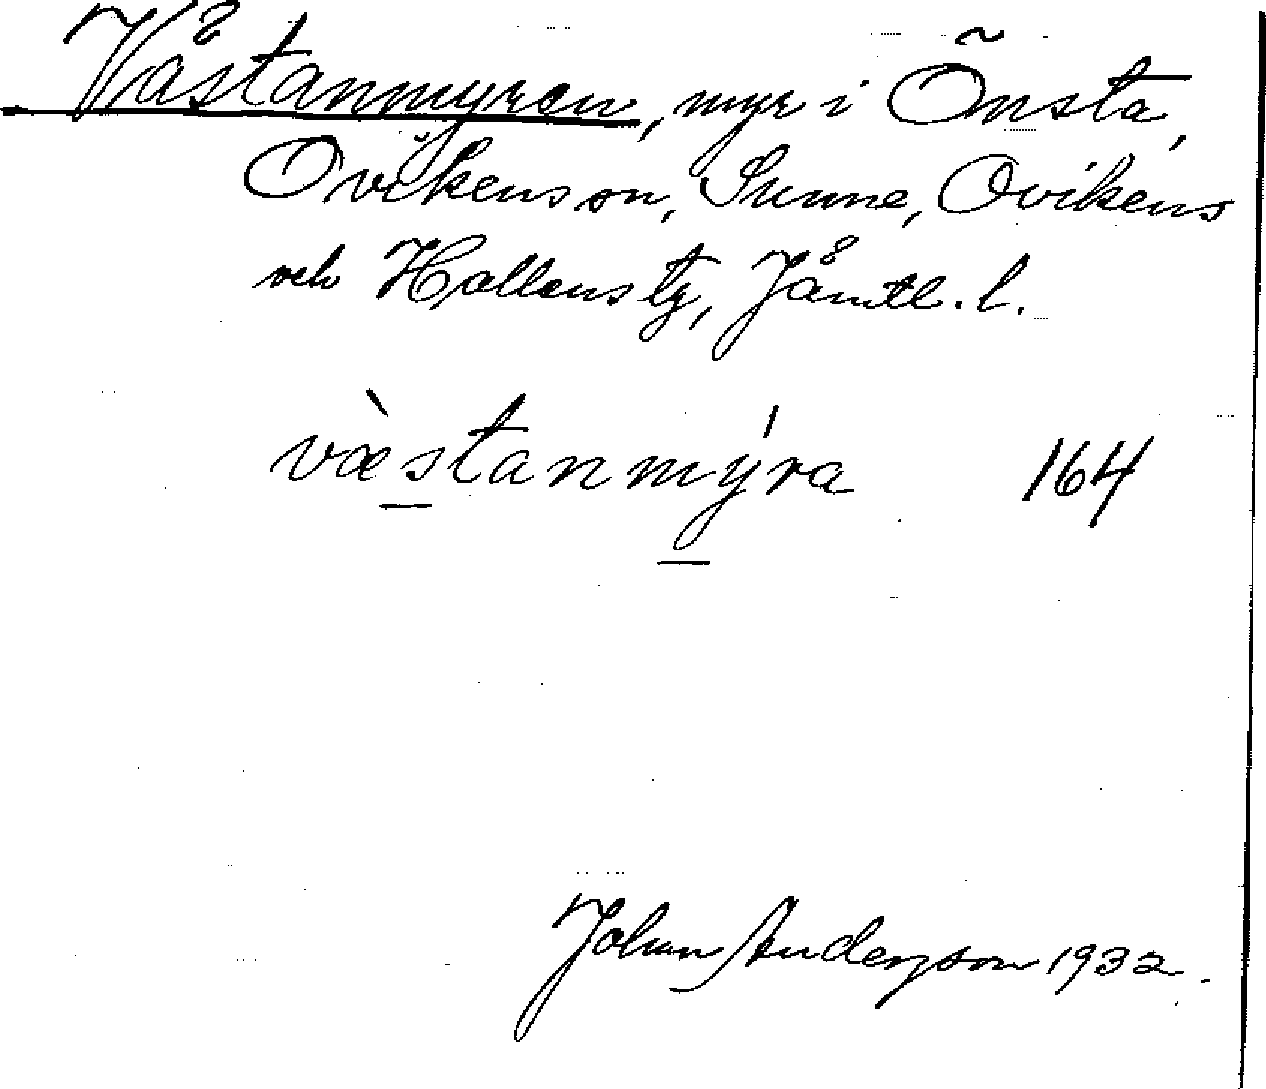 Våstanmyren, myr i Önsta,
Ovikens sn, Sunne, Ovikens
och Hallens tg, Jämtl. l.
væstanmýra 164
Johan Anderson 1932.